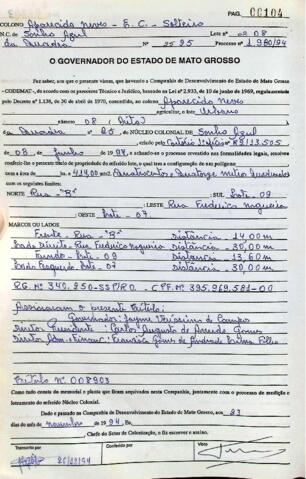 PAG. 00104
COLONO Aparecida Neves - E. C. - Solteiro
N.C. de Sonho Azul Lote nº 08
da Quadra Nº 25 Processo nº 1.980/94
O GOVERNADOR DO ESTADO DE MATO GROSSO
Faz saber, aos que a presente virem, que havendo a Companhia de Desenvolvimento do Estado de Mato Grosso
- CODEMAT -, de acordo com os pareceres Técnico e Jurídico, baseada na Lei nº 2.933, de 10 de junho de 1969, regulamentada
pelo Decreto nº 1.138, de 30 de abril de 1970, concedida, ao colono Aparecida Neves
agricultor, o lote Urbano
número 08 (oito)
da Quadra nº 25, do NÚCLEO COLONIAL DE Sonho Azul
criado pelo
de 08 de Junho 1994, e achando-se o processo revestido nas formalidades legais, resolveu
conferir-lhe o presente título de propriedade do referido lote, o qual tem a configuração de um polígono
tem a área de 414,00 m² Quatrocentos e Quatorze metros quadrados
com os seguintes limites:
NORTE Rua "B" SUL Lote - 09
LESTE Rua Frederico Nogueira
OESTE Lote - 07
MARCOS OU LADOS
Frente - Rua "B" Distância - 14,00m
Lado Direito - Rua Frederico Nogueira Distância - 30,00m
Fundo - Lote - 09 Distância - 13,60m
Lado Esquerdo - Lote - 07 Distância - 30,00m
RG. Nº 340.250-SSP/RO. - CPF. Nº 395.969.581-00
Assinaram o presente título:
Governador: Jayme Veríssimo de Campos
Diretor Presidente: Carlos Augusto de Arruda Gomes
Diretor Adm. Financ: Francisco Gomes de Andrade Lima Filho
Título Nº 008903
Tudo como consta do memorial e planta que foram arquivados nesta Companhia, juntamente com o processo de medição e
loteamento do referido Núcleo Colonial.
Dado e passado na Companhia de Desenvolvimento do Estado de Mato Grosso, aos 23
dias do mês de novembro de 1994. Eu,
Chefe do Setor de Colonização, o fiz escrever e assino.
Transcrito por
Conferido em
Visto